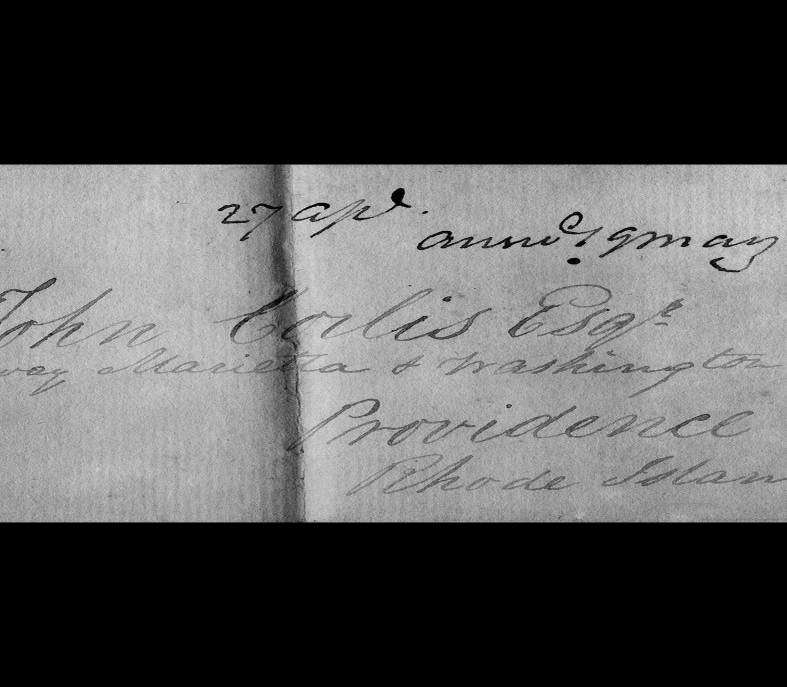 27 apl.
annsd 9 may
John Corlis Esqr.
way Marietta & Washington
Providence
Rhode Islan